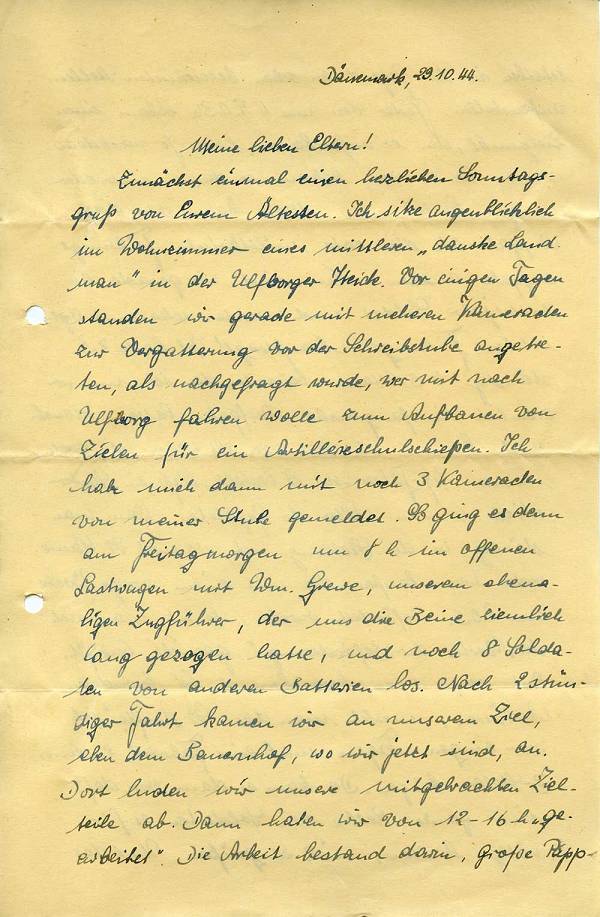 Dänemark, 29.10.44.
Meine lieben Eltern!
Zunächst einmal einen herzlichen Sonntags-
gruß von Eurem Ältesten. Ich sitze augenblicklich
im Wohnzimmer eines mittleren „danske Land-
man" in der Ulfborger Heide. Vor einigen Tagen
standen wir gerade mit meheren Kameraden
zur Vergatterung vor der Schreibstube angetre-
ten, als nachgefragt wurde, wer mit nach
Ulfborg fahren wolle zum Aufbauen von
Zielen für ein Artillerieschulschießen. Ich
habe mich dann mit noch 3 Kameraden
von meiner Stube gemeldet. So ging es denn
am Freitagmorgen um 8 h im offenen
Lastwagen mit Wm. Grewe, unserem ehema-
ligen Zugführer, der uns die Beine ziemlich
lang gezogen hatte, und noch 8 Solda-
ten von anderen Batterien los. Nach 2 stün-
diger Fahrt kamen wir an unserem Ziel,
eben dem Bauernhof, wo wir jetzt sind, an.
Dort luden wir unsere mitgebrachten Ziel-
teile ab. Dann haben wir von 12-16 h „ge-
arbeitet". Die Arbeit bestand darin, große Papp-